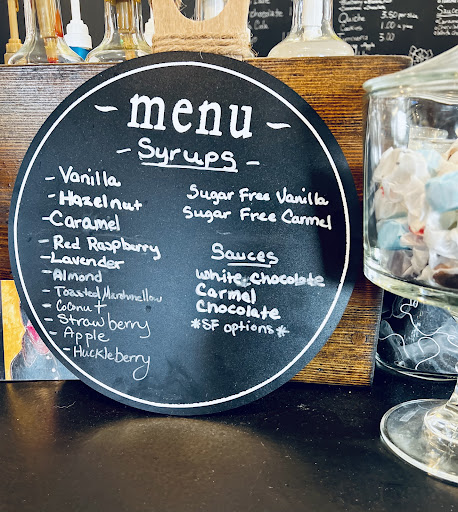 menu
Syrups
- Vanilla
- Hazelnut
- Caramel
- Red Raspberry
- Lavender
- Almond
- Toasted Marshmellow
- Coconut
- Strawberry
- Apple
- Huckleberry
Sugar Free Vanilla
Sugar Free Carmel
Sauces
White Chocolate
Carmel
Chocolate
*SF options*
Chocolate
Quiche 3.50
Cookies 1.00
3.00